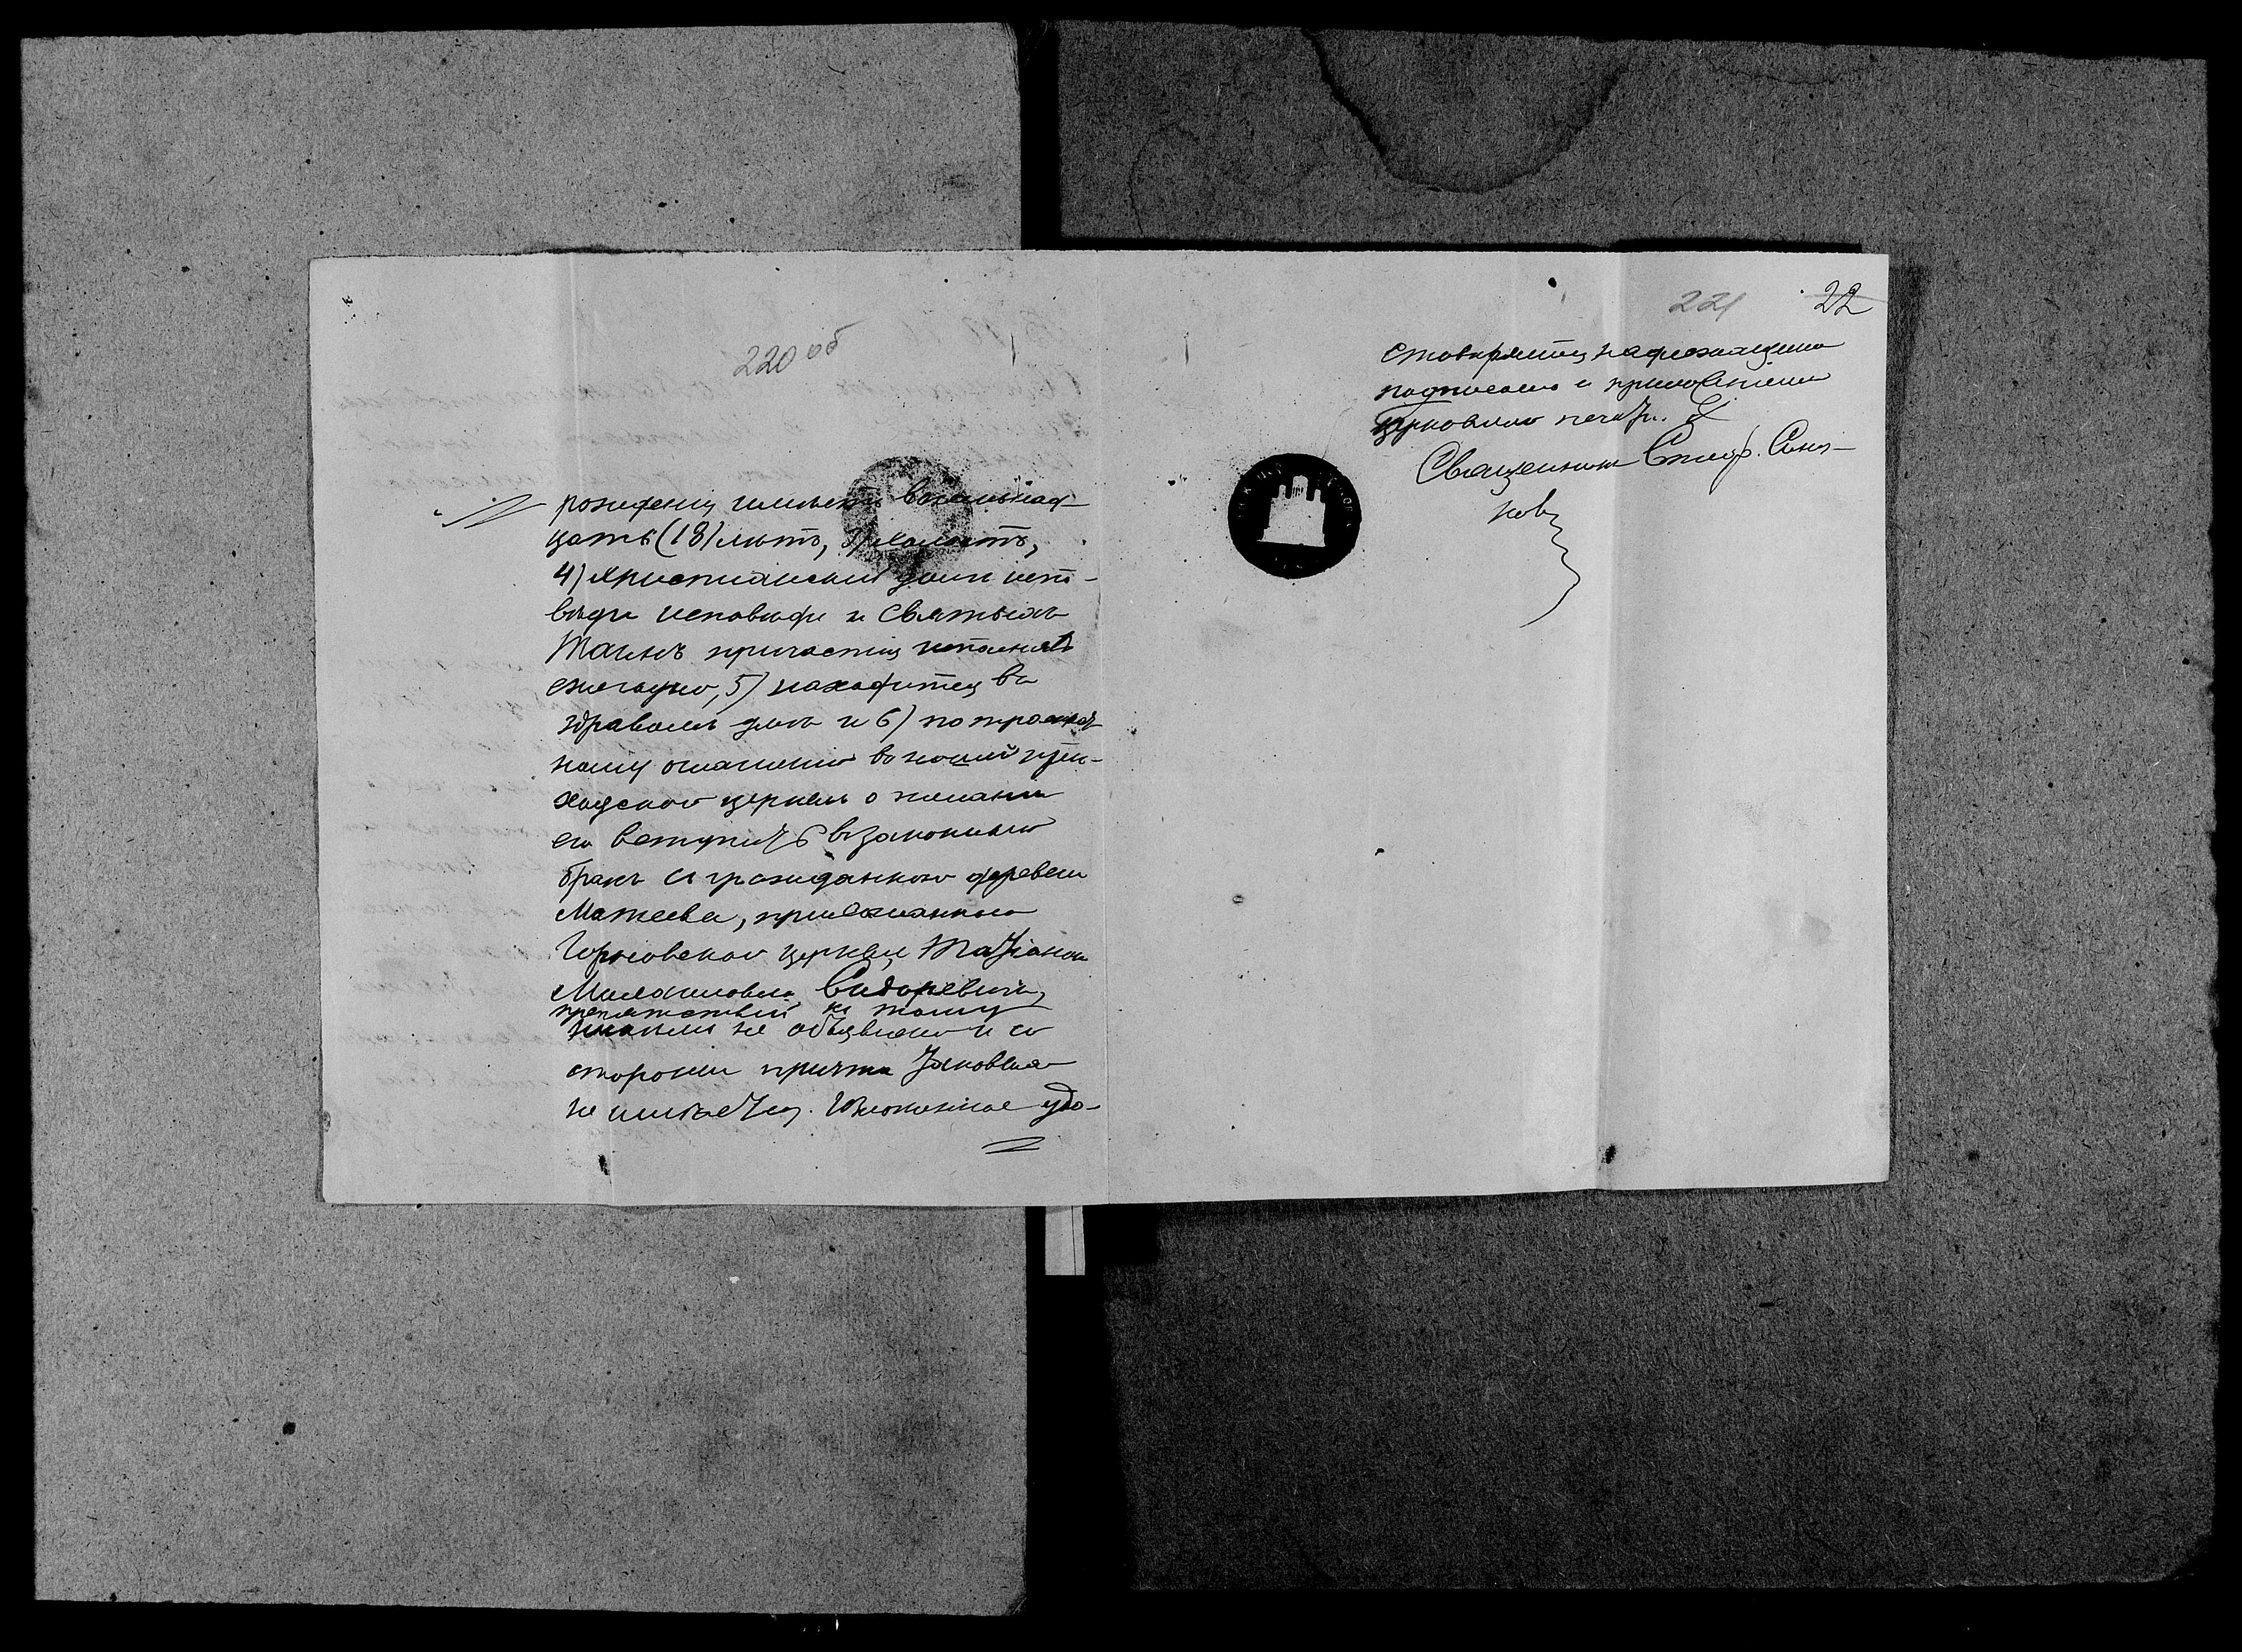 220 об
рожденія имѣетъ восемьнад-
цать (18) лѣтъ, 3) холостъ,
4) христіанскій долгъ испо-
вѣди исповѣди и Святыхъ
Таинъ причастія исполнялъ
ежегодно, 5) находится въ
здравомъ умѣ и 6) по троекрат
ному оглашенію въ нашей при-
ходской церкви о желаніи
его вступить въ законный
бракъ съ гражданкою деревни
Матеева, прихожанкою
церкви Татіаною
Михаиловною Сидоревичъ,
препятствій къ тому
никѣмъ не объявлено и со
стороны причта таковыхъ
не имѣется. Изложенное удо-
221
22
стовѣряется надлежащимъ
подписомъ и приложеніемъ
церковной печати.
Священникъ